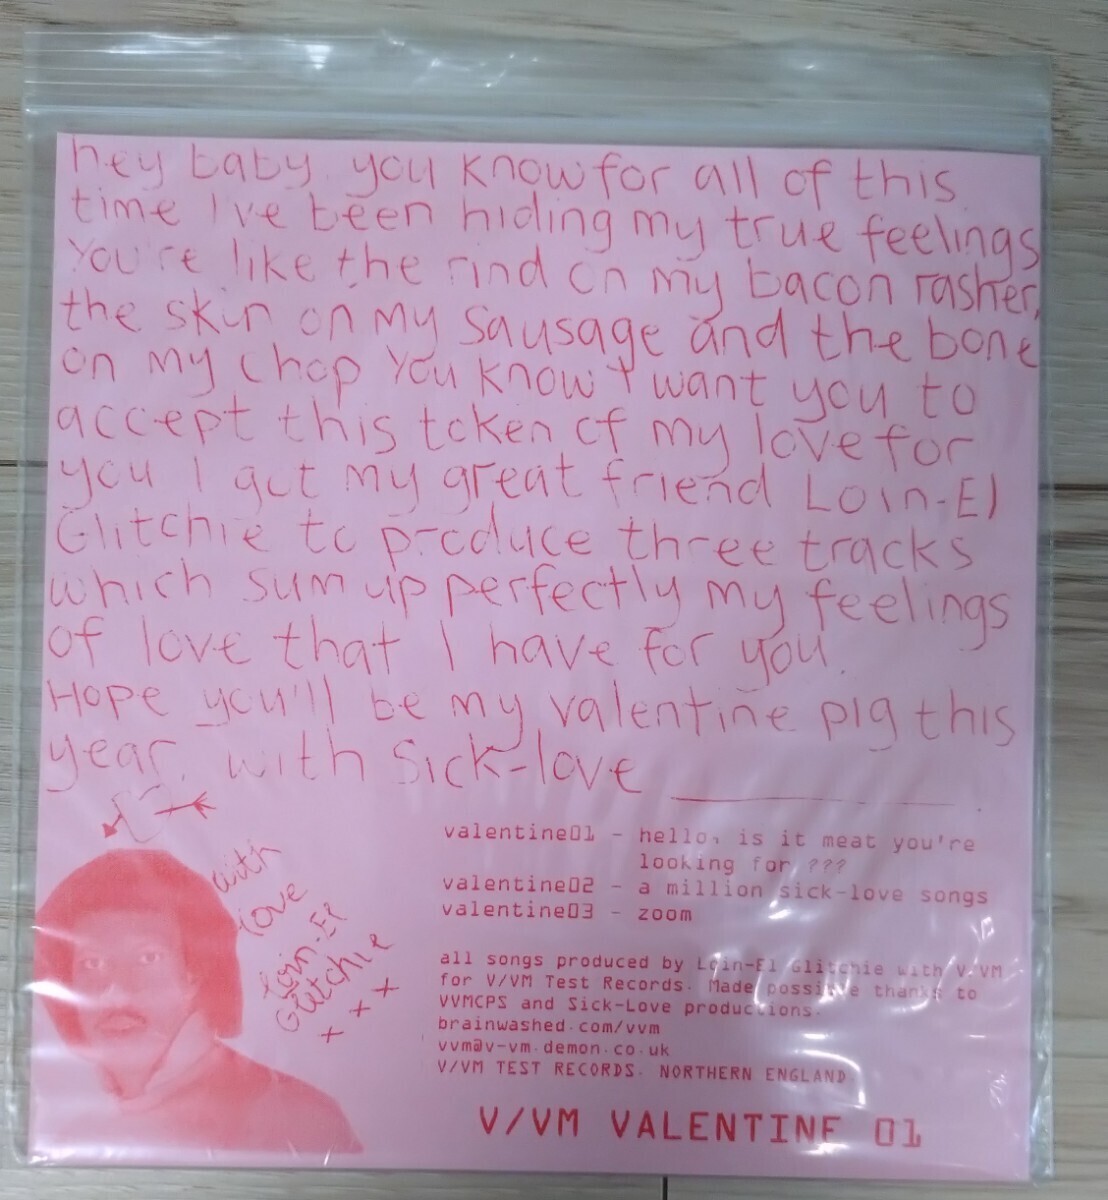 hey baby you know for all of this
time I've been hiding my true feelings
You're like the rind on my bacon rasher,
the skin on my sausage and the bone
on my chop You know I want you to
accept this token of my love for
you I got my great friend Loin-El
Glitchie to produce three tracks
which sum up perfectly my feelings
of love that I have for you.
Hope you'll be my valentine pig this
year. with Sick-love
with
love
Loin-El
Glitchie
x x x
valentine01 - hello, is it meat you're
looking for ???
valentine02 - a million sick-love songs
valentine03 - zoom
all songs produced by Loin-El Glitchie with V/VM
for V/VM Test Records. Made possible thanks to
VVMCPS and Sick-Love productions.
brainwashed.com/vvm
vvm@v-vm.demon.co.uk
V/VM TEST RECORDS. NORTHERN ENGLAND
V/VM VALENTINE 01